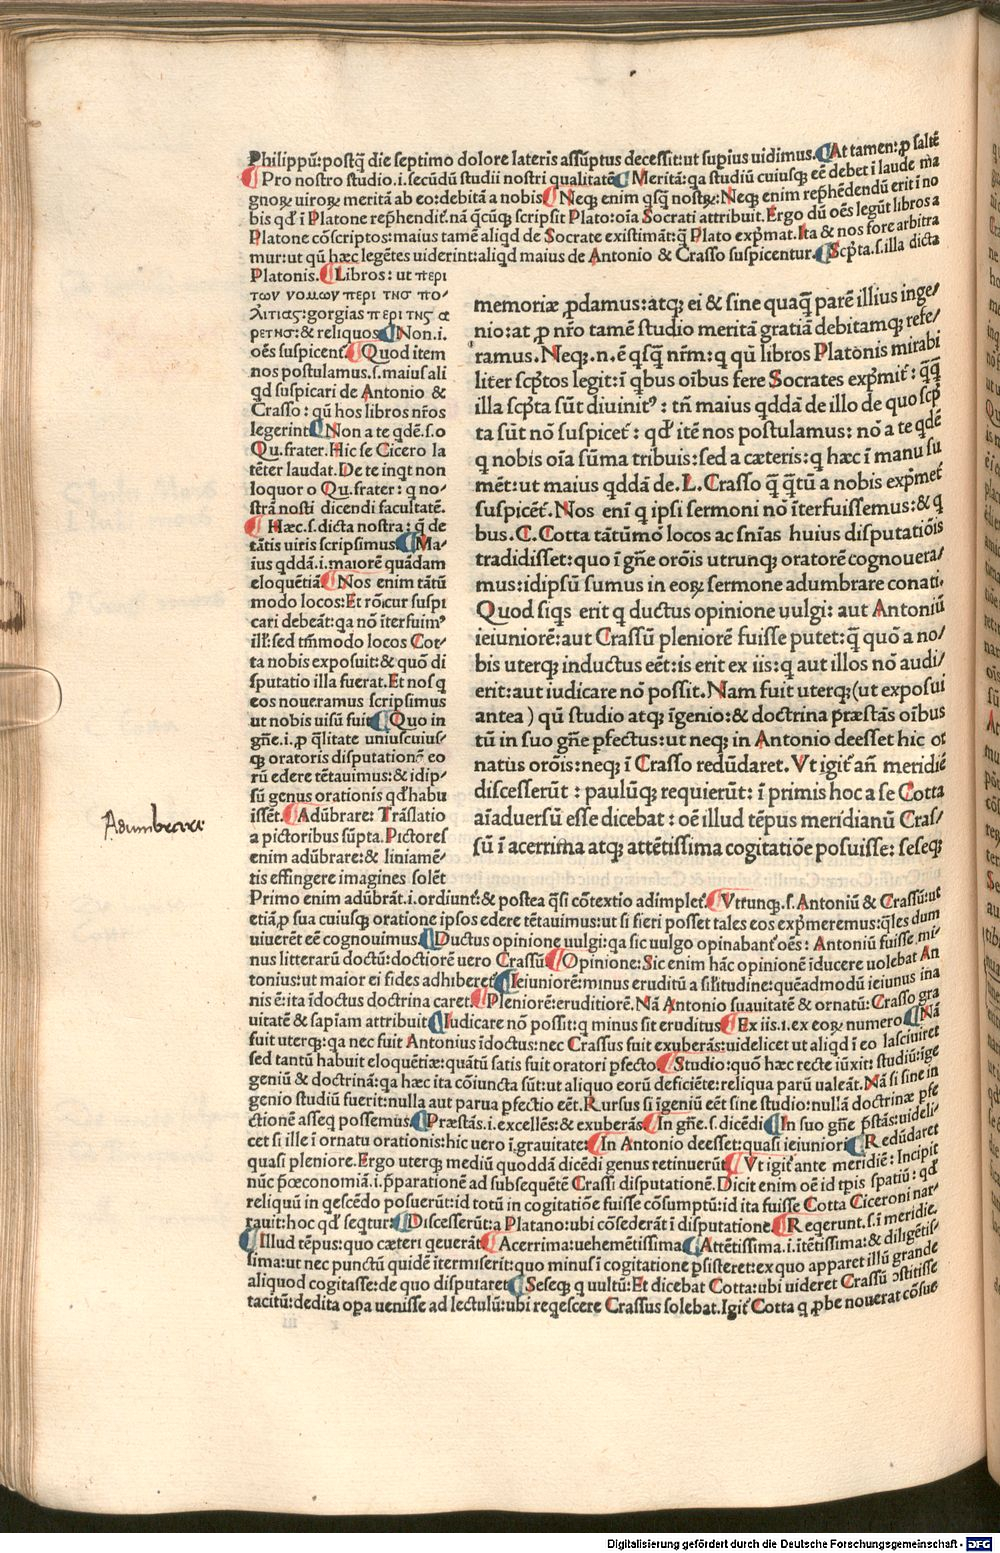 Philippū:postq̄ die septimo dolore lateris assūptus decessit:ut supius uidimus.¶At tamen:ꝓ saltē
¶Pro nostro studio.i.secūdū studii nostri qualitatē¶Meritā:qa studiū cuiusqꝫ eē debet ī laude ma
gnoꝝ uiroꝝ meritā ab eo:debitā a nobis¶Neqꝫ enim qsq̄ nostꝝ:Neqꝫ enim rep̄hēdendū erit ī no
bis qd' ī Platone rep̄hendit̄.nā q̄cūqꝫ scripsit Plato:oīa Socrati attribuit.Ergo dū oēs legūt libros a
Platone cōscriptos:maius tamē aliqd de Socrate existimāt:q̄ Plato exp̄mat.Ita & nos fore arbitra
mur:ut qū hæc legētes uiderint:aliqd maius de Antonio & Crasso suspicentur.¶Scp̄ta.s.illa dicta
Platonis.¶Libros: ut περι
των νομων περι της πο-
λιτιας:gorgias περι της α
ρετης:& reliquos¶Non.i.
oēs suspicent̄.¶Quod item
nos postulamus.s.maius ali
qd suspicari de Antonio &
Crasso: qū hos libros nr̄os
legerint¶Non a te qdē.s.o
Qu.frater.Hic se Cicero la
tēter laudat.De te inqt non
loquor o Qu.frater: q no/
strā nosti dicendi facultatē.
¶Hæc.s.dicta nostra: q̄ de
tātis uiris scripsimus¶Ma/
ius qddā.i.maiorē quādam
eloquētiā¶Nos enim tātū
modo locos:Et rōicur suspi
cari debeāt:qa nō īterfuim⁹
illi:sed tm̄modo locos Cot/
ta nobis exposuit:& quō di
sputatio illa fuerat.Et nos q
eos noueramus scripsimus
ut nobis uisū fuit¶Quo in
gn̄e.i.ꝓ q̄litate uniuscuius/
qꝫ oratoris disputationē eo
rū edere tētauimus:& idip/
sū genus orationis qd' habu
issēt.¶Adūbrare: Trāslatio
a pictoribus sūpta.Pictores
enim adūbrare:& liniamē/
tis effingere imagines solēt
memoriæ ꝓdamus:atqꝫ ei & sine quaq̄ parē illius inge/
nio:at ꝓ nr̄o tamē studio meritā gratiā debitamqꝫ refe/
ramus.Neqꝫ.n.ē qsq̄ nr̄m:q qū libros Platonis mirabi
liter scp̄tos legit:ī qbus oībus fere Socrates exp̄mit̄: q̄q̄
illa scp̄ta sūt diuinit⁹: tn̄ maius qddā de illo de quo scp̄
ta sūt nō suspicet̄: qd' itē nos postulamus: nō a te qdē
q nobis oīa sūma tribuis:sed a cæteris:q hæc ī manu su
mēt:ut maius qddā de.L.Crasso q̄ q̄tū a nobis exp̄met̄
suspicēt̄.Nos eni q ipsi sermoni nō īterfuissemus:& q
bus.C.Cotta tātūmō locos ac sn̄ias huius disputatiōis
tradidisset:quo ī gn̄e orōis utrunqꝫ oratorē cognouera/
mus:idipsū sumus in eoꝝ sermone adumbrare conati.
Quod siqs erit q ductus opinione uulgi: aut Antoniū
ieiuniorē:aut Crassū pleniorē fuisse putet:q̄ quō a no/
bis uterqꝫ inductus eēt:is erit ex iis:q aut illos nō audi/
erit:aut iudicare nō possit.Nam fuit uterqꝫ(ut exposui
antea) qū studio atqꝫ īgenio:& doctrina præstās oībus
tū in suo gn̄e ꝑfectus:ut neqꝫ in Antonio deesset hic or
natus orōis:neqꝫ ī Crasso redūdaret.Vt igit̄ an̄ meridiē
discesserūt : paulūqꝫ requierūt: ī primis hoc a se Cotta
aīaduersū esse dicebat : oē illud tēpus meridianū Cras/
sū ī acerrima atqꝫ attētissima cogitatiōe posuisse: seseqꝫ
Primo enim adūbrāt.i.ordiunt̄:& postea q̄si cōtextio adimplet̄.¶Vtrunqꝫ.s.Antoniū & Crassū:ut
etiā ꝓ sua cuiusqꝫ oratione ipsos edere tētauimus:ut si fieri posset tales eos exp̄meremus:q̄les dum
uiuerēt eē cognouimus.¶Ductus opinione uulgi:qa sic uulgo opinabant̄ oēs: Antoniū fuisse mi/
nus litterarū doctū:doctiorē uero Crassū¶Opinione:Sic enim hāc opinionē īducere uolebat An
tonius:ut maior ei fides adhiberet̄¶Ieiuniorē:minus eruditū a similitudine:quēadmodū ieiunus ina
nis ē:ita īdoctus doctrina caret:¶Pleniorē:eruditiorē.Nā Antonio suauitatē & ornatū:Crasso gra
uitatē & sapiam attribuit¶Iudicare nō possit:q minus sit eruditus¶Ex iis.i.ex eoꝝ numero¶Nā
fuit uterqꝫ:qa nec fuit Antonius īdoctus:nec Crassus fuit exuberās:uidelicet ut aliqd ī eo lasciuiret
sed tantū habuit eloquētiæ:quātū satis fuit oratori ꝑfecto¶Studio:quō hæc recte iūxit: studiū:ige
geniū & doctrinā:qa hæc ita cōiuncta sūt:ut aliquo eorū deficiēte:reliqua parū ualeāt.Nā si sine in
genio studiū fuerit:nulla aut parua ꝑfectio eēt.Rursus si īgeniū eēt sine studio:nullā doctrinæ ꝑfe
ctionē asseq possemus.¶Præstās.i.excellēs:& exuberās¶In gn̄e.s.dicēdi¶In suo gn̄e p̄stās:uideli/
cet si ille ī ornatu orationis:hic uero ī grauitate:¶In Antonio deesset:quasi ieiuniori¶Redūdaret
quasi pleniore.Ergo uterqꝫ mediū quoddā dicēdi genus retinuerūt¶Vt igit̄ ante meridiē: Incipit
nūc ꝑœconomiā.i.p̄parationē ad subsequētē Crassi disputationē.Dicit enim oē id tp̄is spatiū: qd'
reliquū in qescēdo posuerūt:id totū in cogitatiōe fuisse cōsumptū:id ita fuisse Cotta Ciceroni nar/
rauit:hoc qd' seqtur:¶Discesserūt:a Platano:ubi cōsederāt ī disputatione.¶Reqerunt.s.ī meridie.
¶Illud tēpus:quo cæteri qeuerāt¶Acerrima:uehemētissima¶Attētissima.i.ītētissima:& diligētis/
sima:ut nec punctū quidē itermiserit:quo minus ī cogitatione p̄sisteret:ex quo apparet illū grande
aliquod cogitasse:de quo disputaret¶Seseqꝫ q uultū:Et dicebat Cotta:ubi uideret Crassū ↄstitisse
tacitū:dedita opa uenisse ad lectulū:ubi reqescere Crassus solebat.Igit̄ Cotta q ꝓbe nouerat cōsue
Adumbrare
Digitalisierung gefördert durch die Deutsche Forschungsgemeinschaft - DFG